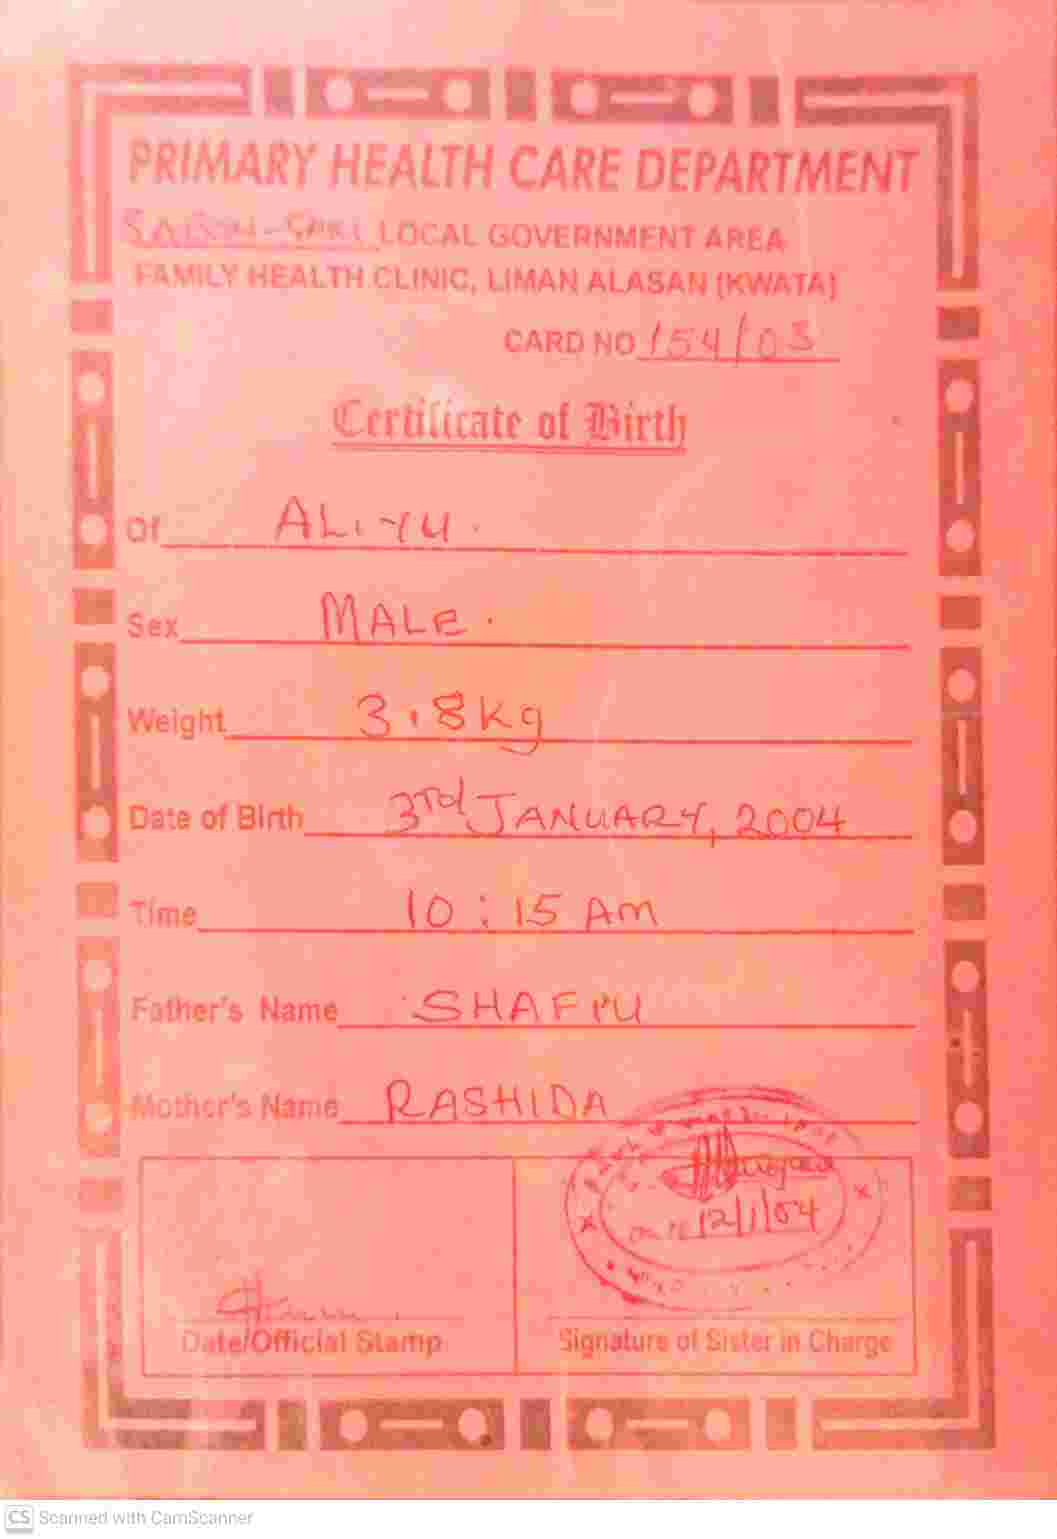 PRIMARY HEALTH CARE DEPARTMENT
SABON-GARI LOCAL GOVERNMENT AREA
FAMILY HEALTH CLINIC, LIMAN ALASAN (KWATA)
CARD NO 154/03
Certificate of Birth
Of ALIYU.
Sex MALE.
Weight 3.8kg
Date of Birth 3rd JANUARY, 2004
Time 10:15 Am
Father's Name SHAFIU
Mother's Name RASHIDA
12/1/04
Date/Official Stamp
Signature of Sister in Charge
CS Scanned with CamScanner